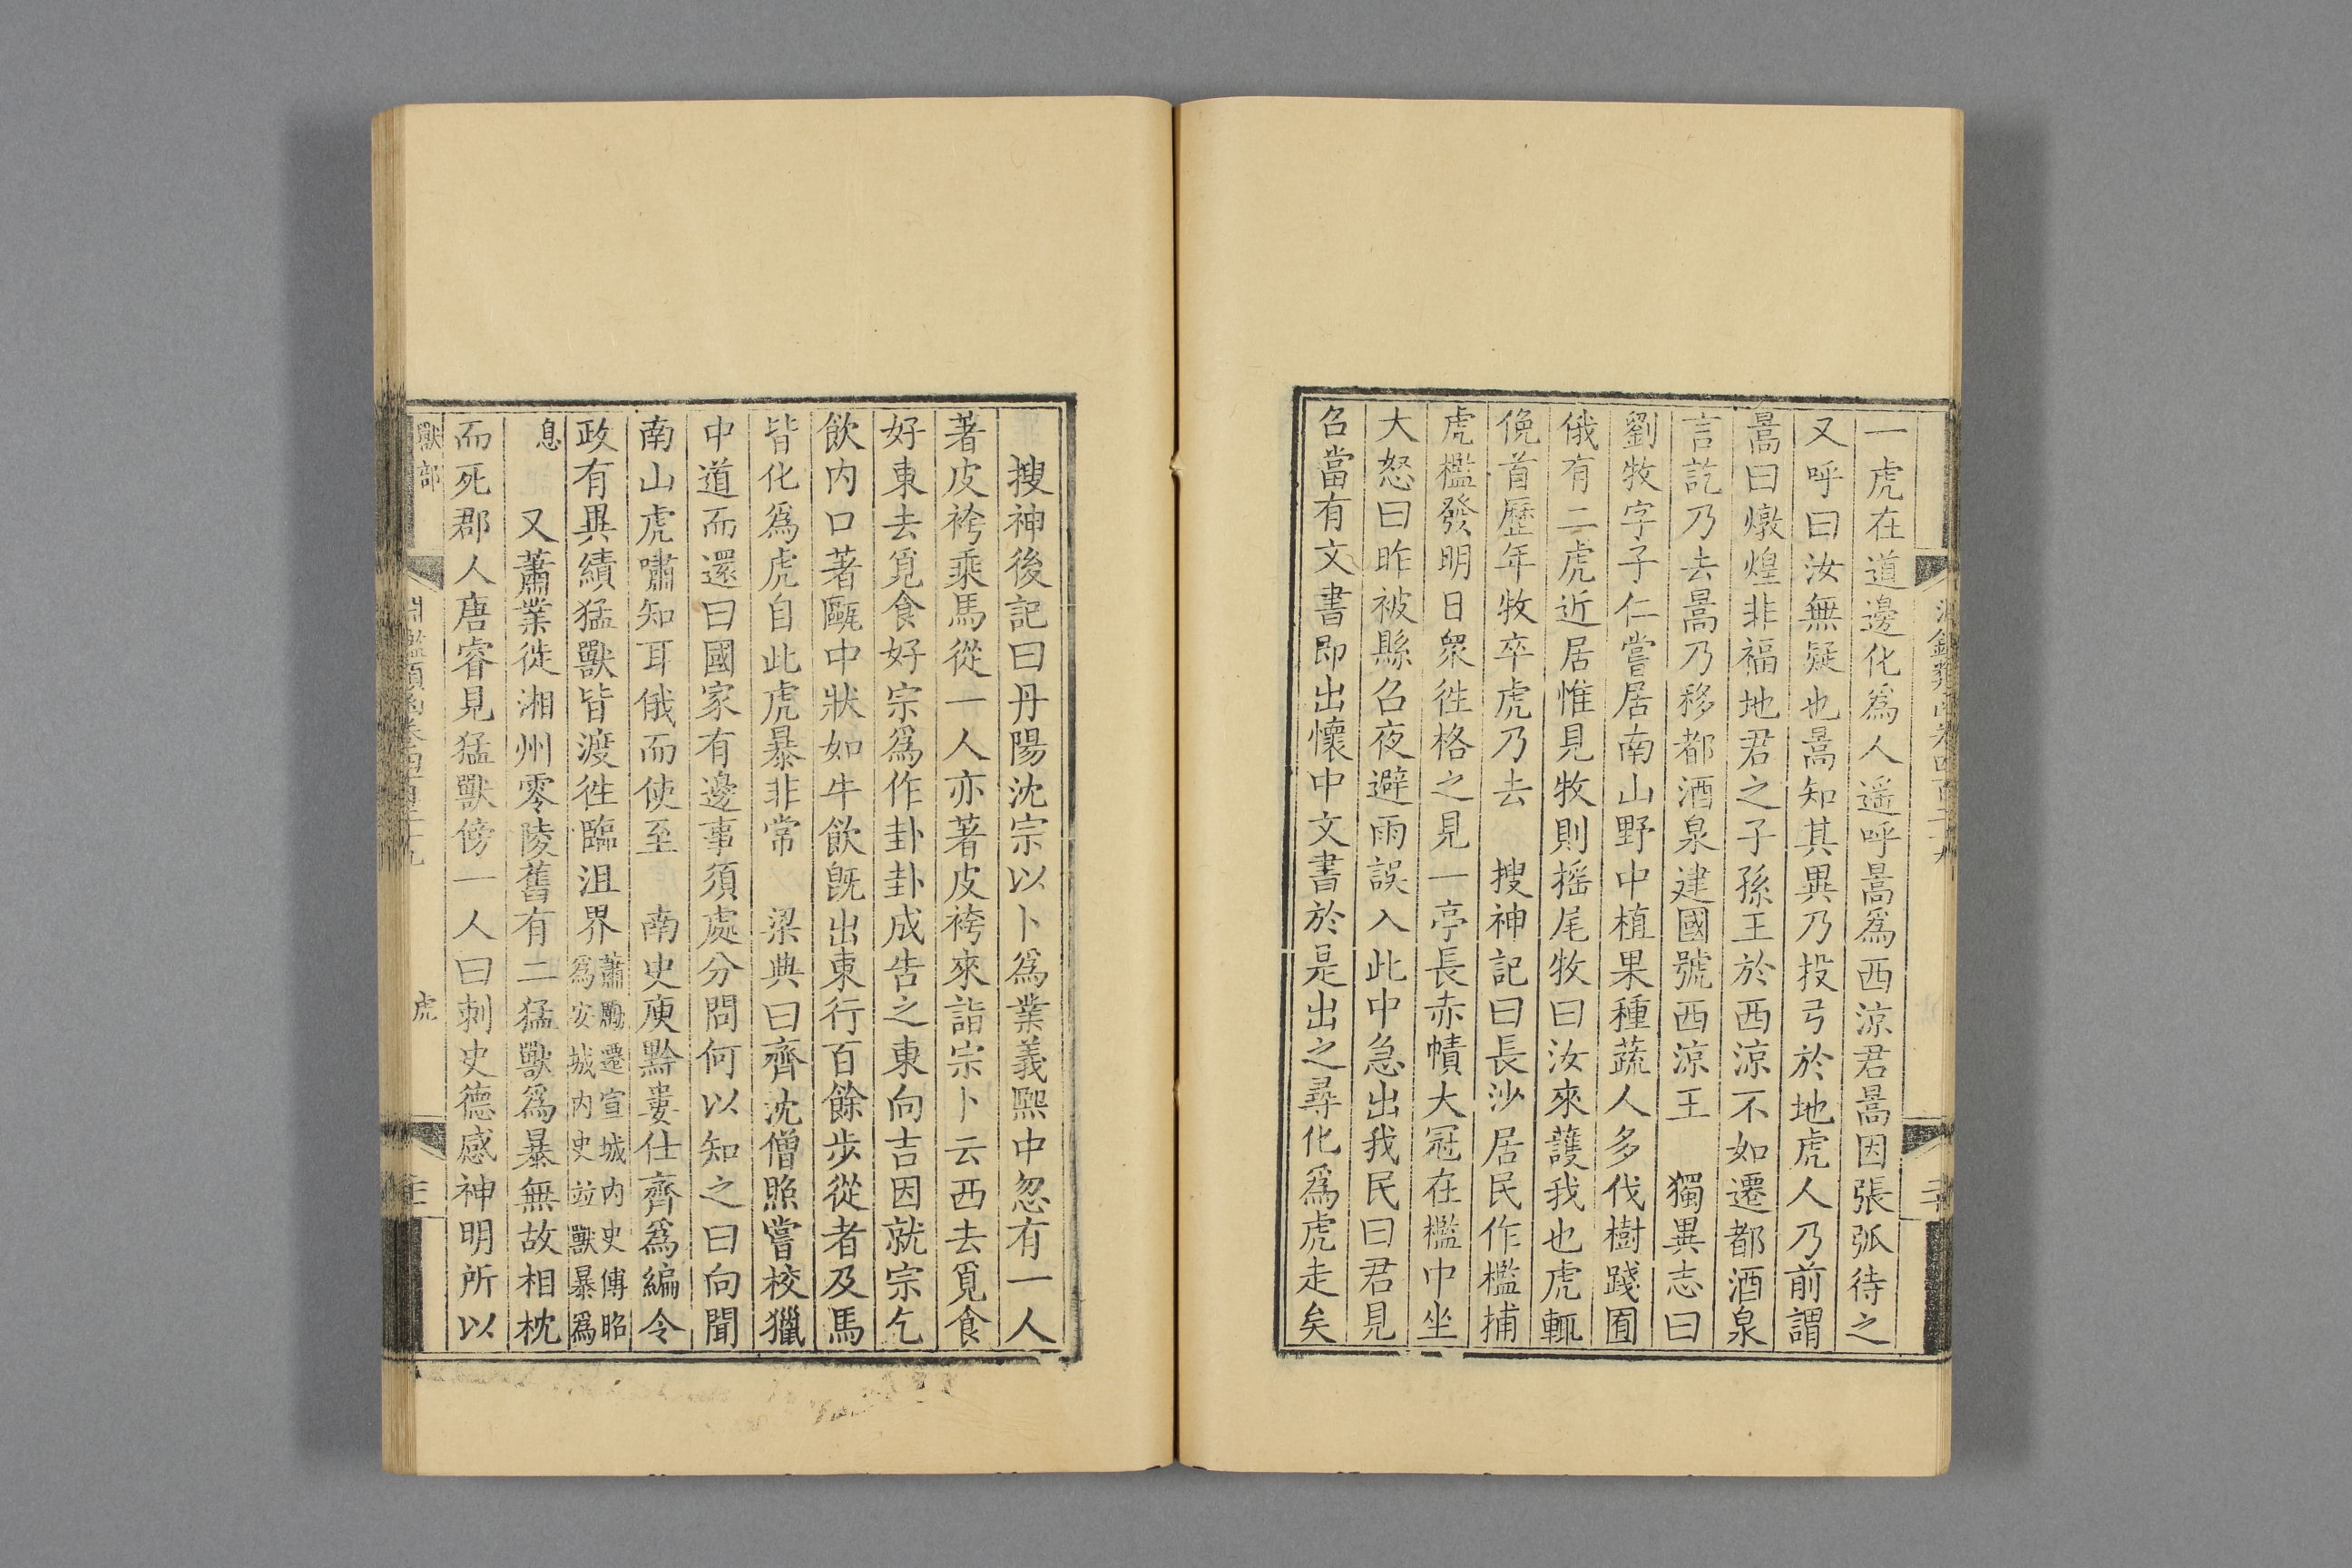 一虎在道邊化爲人遥呼暠爲西涼君暠因張弧待之
又呼曰汝無疑也暠知其異乃投弓於地虎人乃前謂
暠曰燉煌非福地君之子孫王於西涼不如遷都酒泉
言訖乃去暠乃移都酒泉建國號西涼王　獨異志曰
劉牧字子仁嘗居南山野中植果種蔬人多伐樹踐囿
俄有二虎近居惟見牧則摇尾牧曰汝來護我也虎輒
俛首歷年牧卒虎乃去　搜神記曰長沙居民作檻捕
虎檻發明日衆徃格之見一亭長赤幘大冠在檻中坐
大怒曰昨被縣召夜避雨誤入此中急出我民曰君見
召當有文書即出懷中文書於是出之尋化爲虎走矣
搜神後記曰丹陽沈宗以卜爲業義熙中忽有一人
著皮袴乘馬從一人亦著皮袴來詣宗卜云西去覓食
好東去覓食好宗爲作卦卦成告之東向吉因就宗乞
飲内口著甌中狀如牛飲旣出東行百餘步從者及馬
皆化爲虎自此虎暴非常　梁典曰齊沈僧照嘗校獵
中道而還曰國家有邊事須處分問何以知之曰向聞
南山虎嘯知耳俄而使至　南史庾黔婁仕齊爲編令
政有異績猛獸皆渡徃臨沮界
蕭勵遷宣城内史傅昭
爲安城内史並獸暴爲
息　又蕭業徙湘州零陵舊有二猛獸爲暴無故相枕
而死郡人唐睿見猛獸傍一人曰刺史德感神明所以
獸部
虎